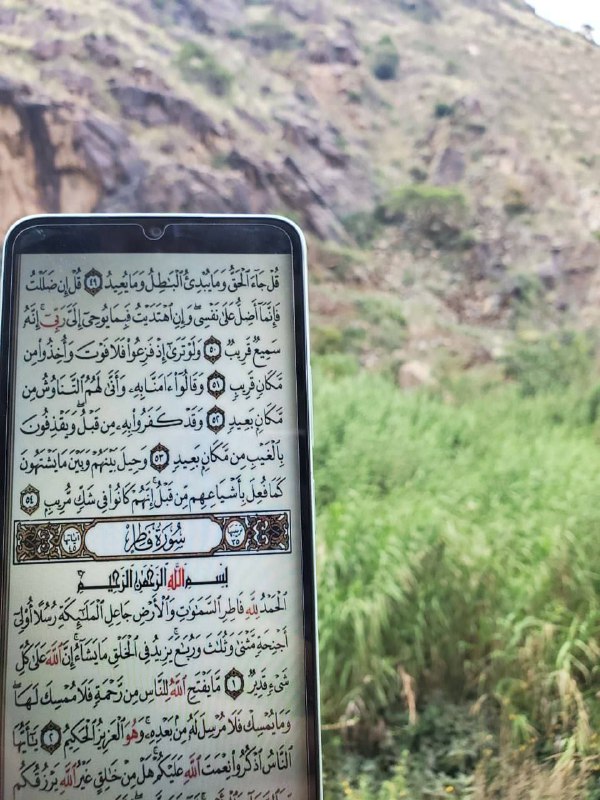 قُلْ جَآءَ ٱلْحَقُّ وَمَا يُبْدِئُ ٱلْبَٰطِلُ وَمَا يُعِيدُ ٤٩ قُلْ إِن ضَلَلْتُ
فَإِنَّمَآ أَضِلُّ عَلَىٰ نَفْسِى وَإِنِ ٱهْتَدَيْتُ فَبِمَا يُوحِىٓ إِلَىَّ رَبِّىٓ إِنَّهُۥ
سَمِيعٌ قَرِيبٌ ٥٠ وَلَوْ تَرَىٰٓ إِذْ فَزِعُوا۟ فَلَا فَوْتَ وَأُخِذُوا۟ مِن
مَّكَانٍ قَرِيبٍ ٥١ وَقَالُوٓا۟ ءَامَنَّا بِهِۦ وَأَنَّىٰ لَهُمُ ٱلتَّنَاوُشُ مِن
مَّكَانٍۭ بَعِيدٍ ٥٢ وَقَدْ كَفَرُوا۟ بِهِۦ مِن قَبْلُ وَيَقْذِفُونَ
بِٱلْغَيْبِ مِن مَّكَانٍۭ بَعِيدٍ ٥٣ وَحِيلَ بَيْنَهُمْ وَبَيْنَ مَا يَشْتَهُونَ
كَمَا فُعِلَ بِأَشْيَاعِهِم مِّن قَبْلُ إِنَّهُمْ كَانُوا۟ فِى شَكٍّ مُّرِيبٍۭ ٥٤
ترتيبها ٣٥ سُورَةُ فَاطِرٍ آياتها ٤٥
بِسْمِ ٱللَّهِ ٱلرَّحْمَٰنِ ٱلرَّحِيمِ
ٱلْحَمْدُ لِلَّهِ فَاطِرِ ٱلسَّمَٰوَٰتِ وَٱلْأَرْضِ جَاعِلِ ٱلْمَلَٰٓئِكَةِ رُسُلًا أُو۟لِىٓ
أَجْنِحَةٍ مَّثْنَىٰ وَثُلَٰثَ وَرُبَٰعَ يَزِيدُ فِى ٱلْخَلْقِ مَا يَشَآءُ إِنَّ ٱللَّهَ عَلَىٰ كُلِّ
شَىْءٍ قَدِيرٌ ١ مَّا يَفْتَحِ ٱللَّهُ لِلنَّاسِ مِن رَّحْمَةٍ فَلَا مُمْسِكَ لَهَا
وَمَا يُمْسِكْ فَلَا مُرْسِلَ لَهُۥ مِنۢ بَعْدِهِۦ وَهُوَ ٱلْعَزِيزُ ٱلْحَكِيمُ ٢ يَٰٓأَيُّهَا
ٱلنَّاسُ ٱذْكُرُوا۟ نِعْمَتَ ٱللَّهِ عَلَيْكُمْ هَلْ مِنْ خَٰلِقٍ غَيْرُ ٱللَّهِ يَرْزُقُكُم